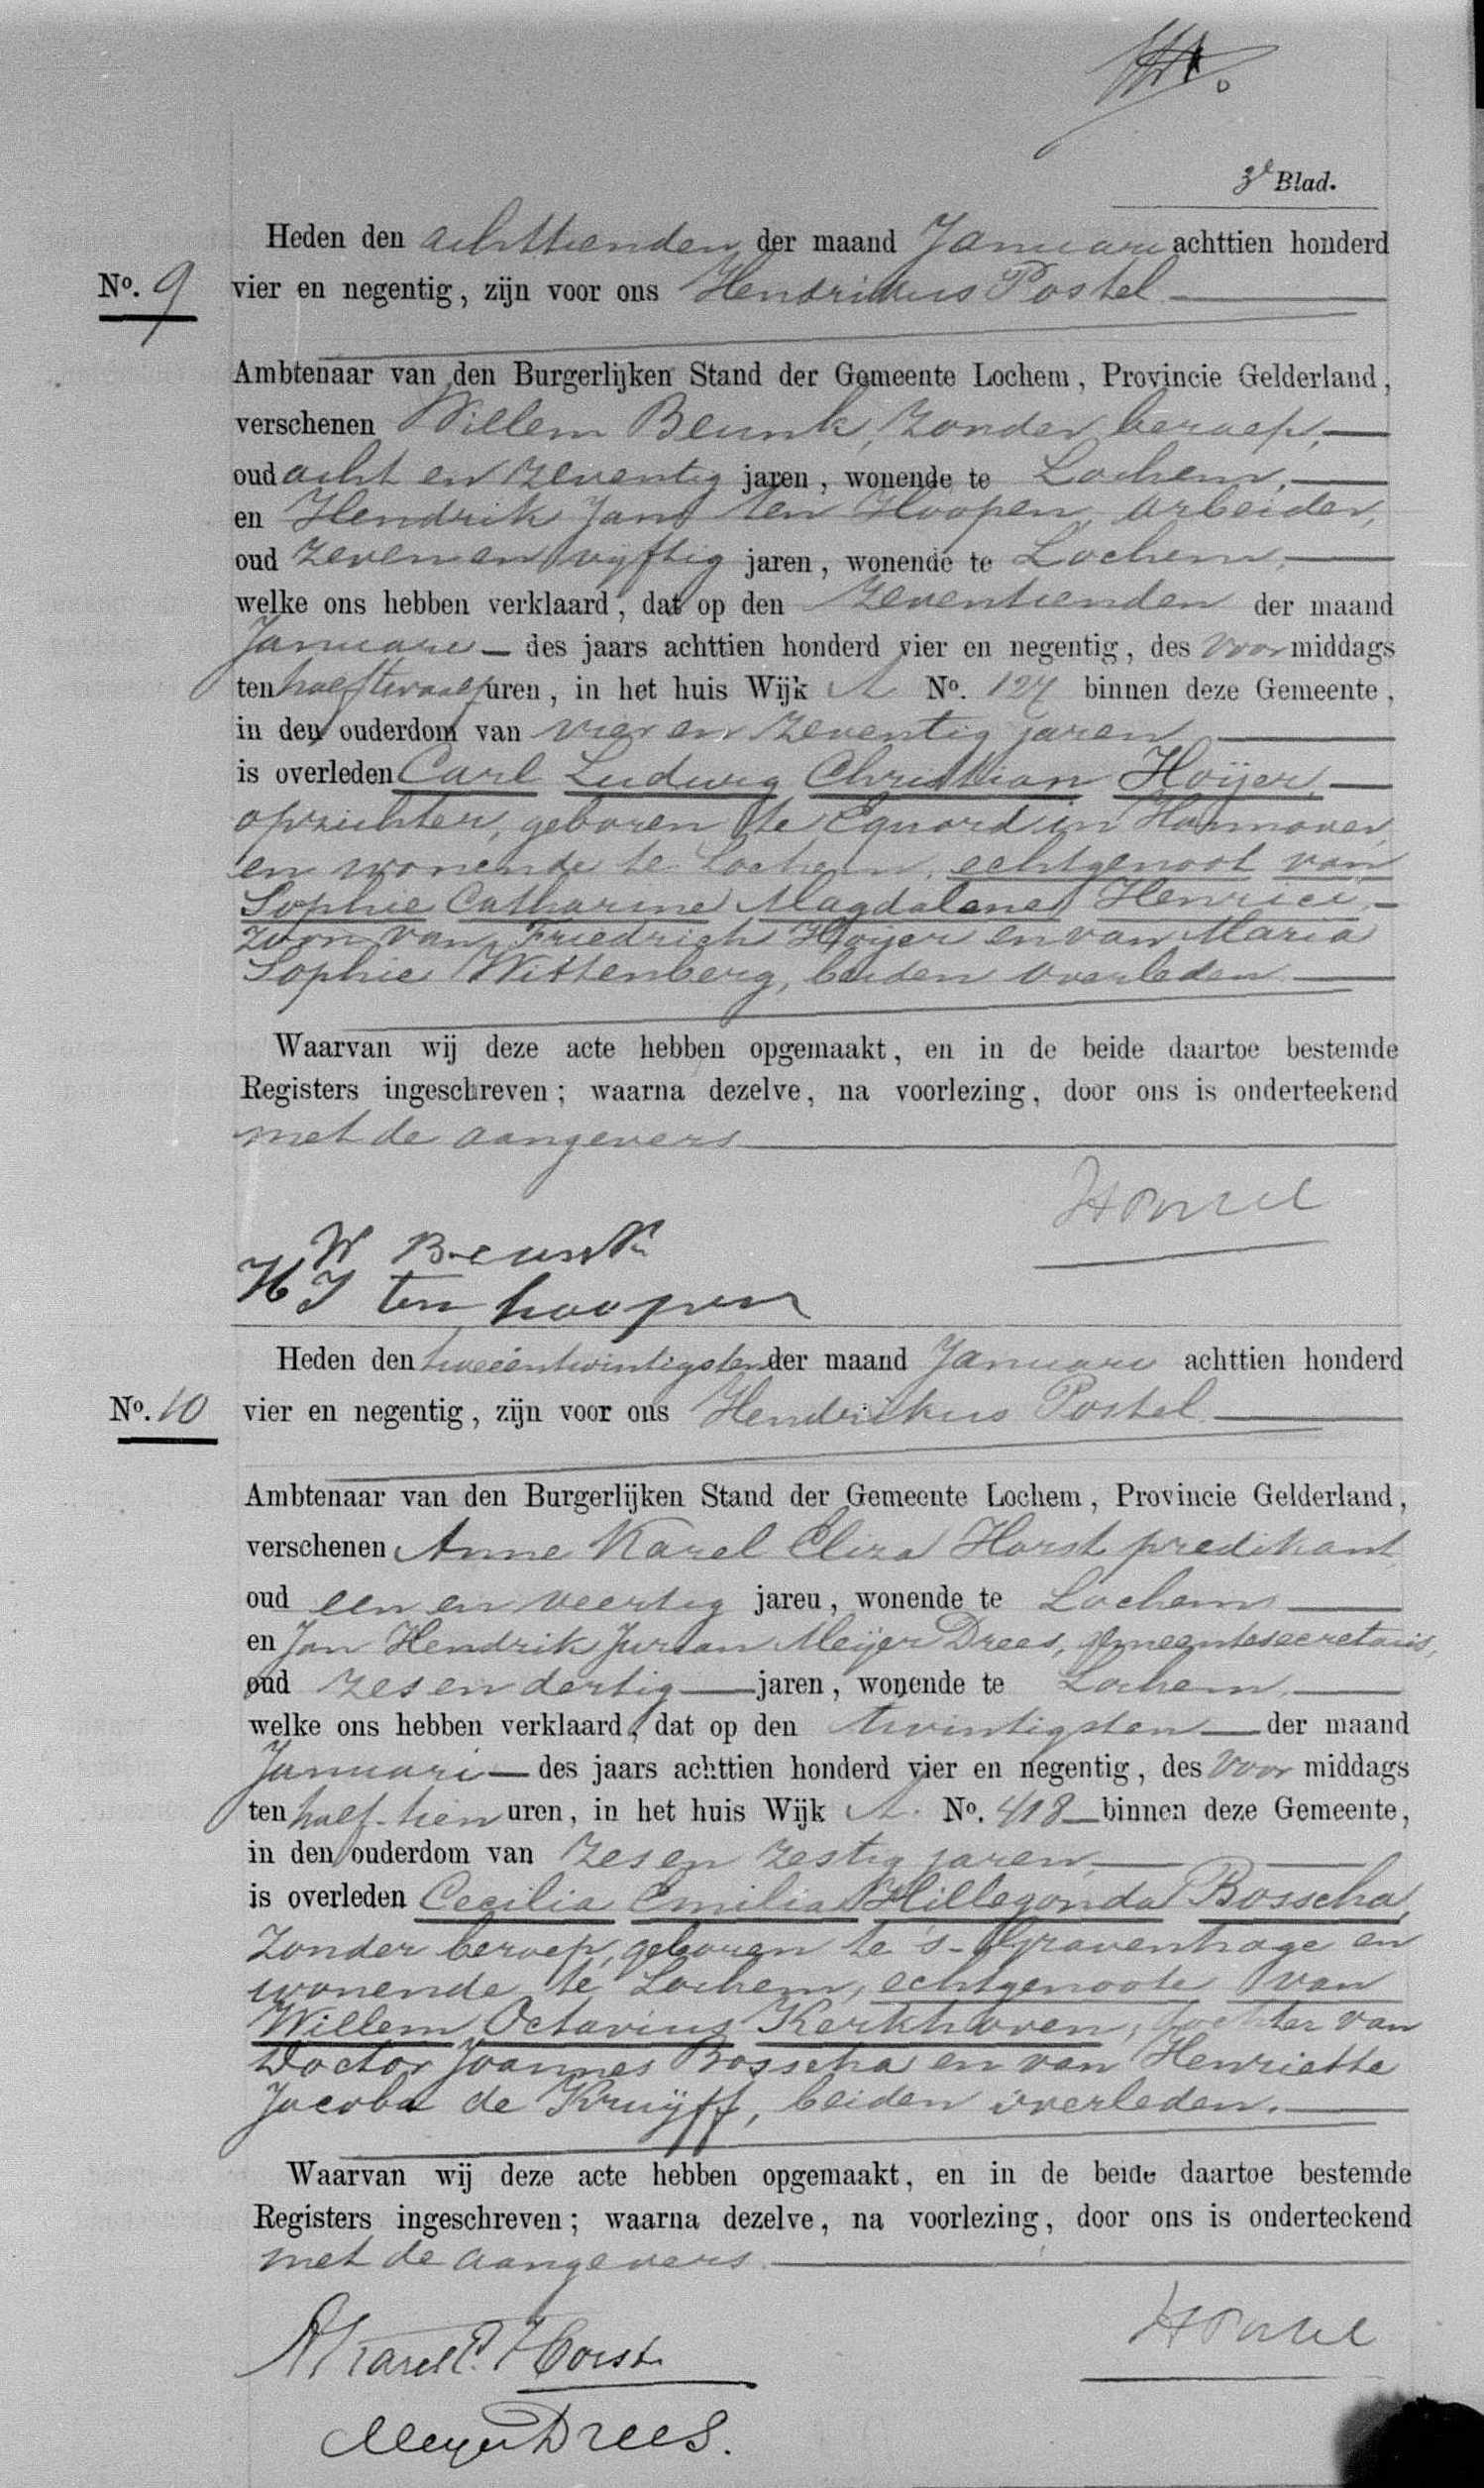 3e Blad.
Heden den achttienden der maand Januari achttien honderd
No. 9 vier en negentig, zijn voor ons Hendrikus Postel
Ambtenaar van den Burgerlijken Stand der Gemeente Lochem, Provincie Gelderland,
verschenen Willem Beunk, zonder beroep,
oud acht en zeventig jaren, wonende te Lochem,
en Hendrik Jan ten Hoopen, arbeider,
oud zeven en vijftig jaren, wonende te Lochem,
welke ons hebben verklaard, dat op den zeventienden der maand
Januari des jaars achttien honderd vier en negentig, des voormiddags
ten half twaalf uren, in het huis Wijk A No. 127 binnen deze Gemeente,
in den ouderdom van vier en zeventig jaren
is overleden Carl Ludwig Christian Hoijer,
opzichter, geboren te Equord in Hannover,
en wonende te Lochem, echtgenoot van
Sophie Catharine Magdalene Henrici,
zoon van Friedrich Hoijer en van Maria
Sophie Wittenberg, beiden overleden.
Waarvan wij deze acte hebben opgemaakt, en in de beide daartoe bestemde
Registers ingeschreven; waarna dezelve, na voorlezing, door ons is onderteekend
met de aangevers
HPostel
W Beunk
H J ten hoopen
Heden den tweeentwintigsten der maand Januari achttien honderd
No. 10 vier en negentig, zijn voor ons Hendrikus Postel
Ambtenaar van den Burgerlijken Stand der Gemeente Lochem, Provincie Gelderland,
verschenen Anne Karel Eliza Horst, predikant,
oud een en veertig jaren, wonende te Lochem
en Jan Hendrik Jurian Meijer Drees, gemeentesecretaris,
oud zes en dertig jaren, wonende te Lochem,
welke ons hebben verklaard, dat op den twintigsten der maand
Januari des jaars achttien honderd vier en negentig, des voor middags
ten half tien uren, in het huis Wijk A. No. 418 binnen deze Gemeente,
in den ouderdom van zes en zestig jaren,
is overleden Cecilia Emilia Hillegonda Bosscha,
zonder beroep, geboren te 's-Gravenhage en
wonende te Lochem, echtgenoote van
Willem Octavius Kerkhoven, dochter van
Doctor Joannes Bosscha en van Henriette
Jacoba de Kruijff, beiden overleden.
Waarvan wij deze acte hebben opgemaakt, en in de beide daartoe bestemde
Registers ingeschreven; waarna dezelve, na voorlezing, door ons is onderteekend
met de aangevers.
HPostel
AKarel E. Horst
Meijer Drees.